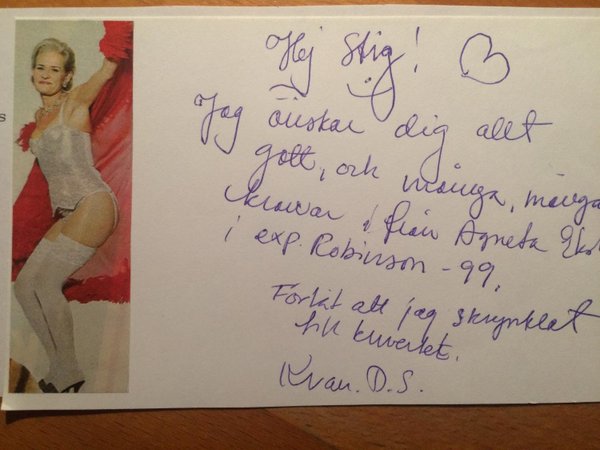 Hej Stig!
Jag önskar dig allt
gott, och många, många
kramar! från Agneta
i exp. Robinson -99.
Förlåt att jag skrynklat
till kuvertet.
D.S.
s